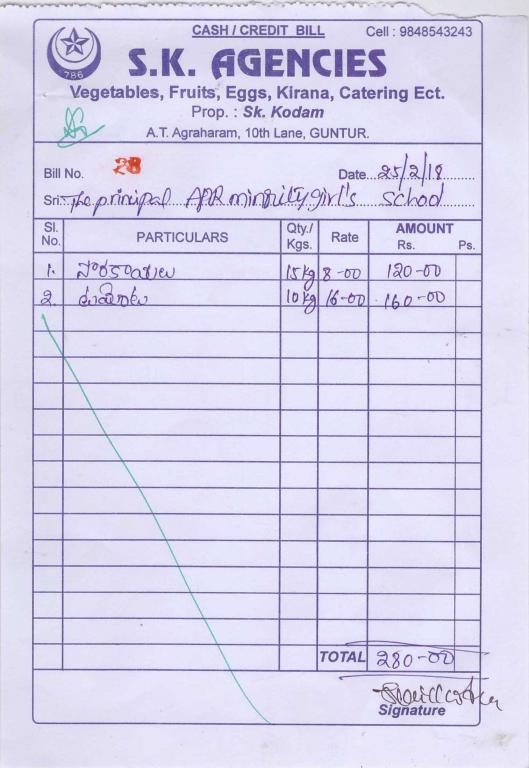 CASH / CREDIT BILL Cell : 9848543243
786
S.K. AGENCIES
Vegetables, Fruits, Eggs, Kirana, Catering Ect.
Prop. : Sk. Kodam
A.T. Agraharam, 10th Lane, GUNTUR.
Bill No. 28 Date 25/2/18
Sri The principal APR minority girl's school
Sl. No. PARTICULARS Qty./ Kgs. Rate AMOUNT Rs. Ps.
1. సొరకాయలు 15 kg 8-00 120-00
2. 10 kg 16-00 160-00
TOTAL 280-00
Signature